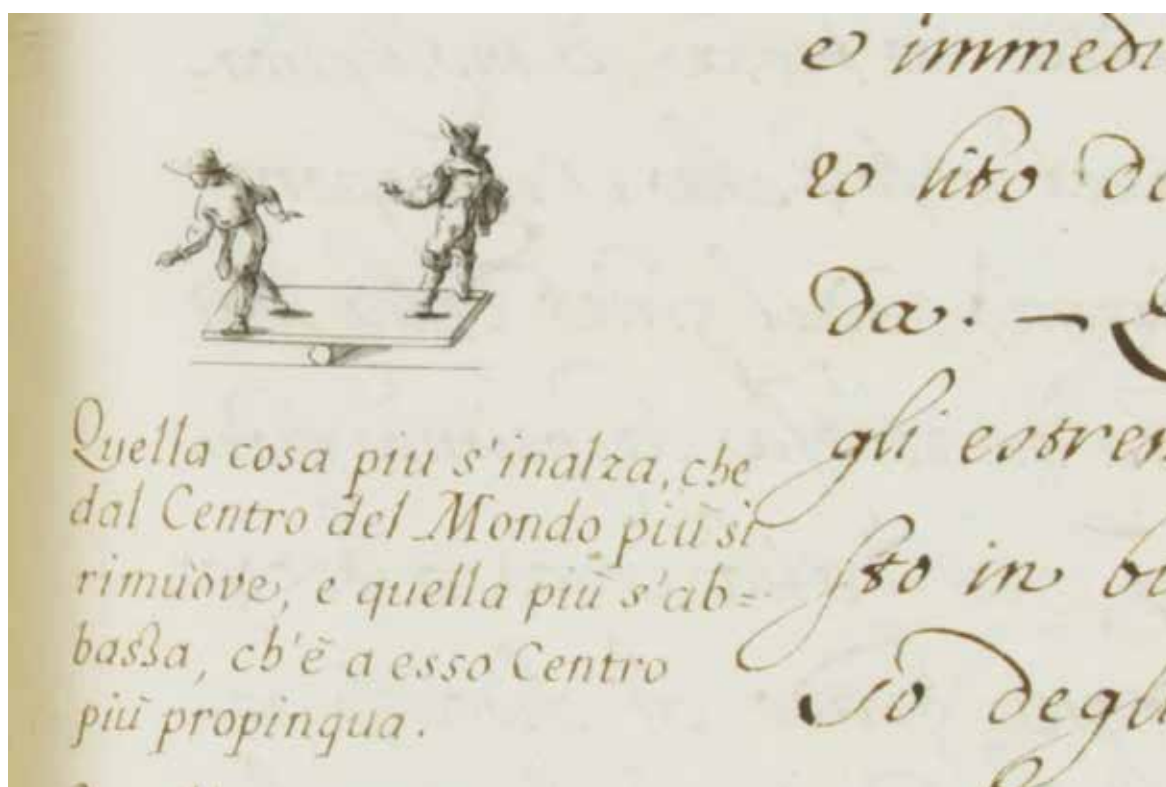 Quella cosa più s'inalza, che
dal Centro del Mondo più si
rimuove, e quella più s'ab=
bassa, ch'è a esso Centro
più propinqua.
e immedi
ro lito de
da. —
gli estrem
sto in bi
so degli